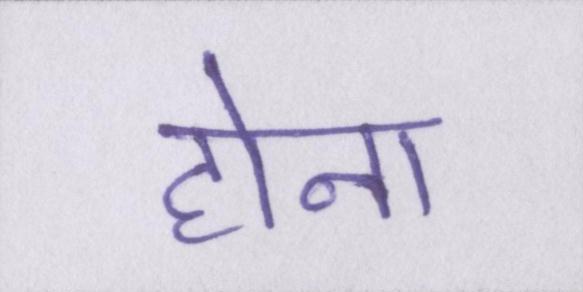 होना